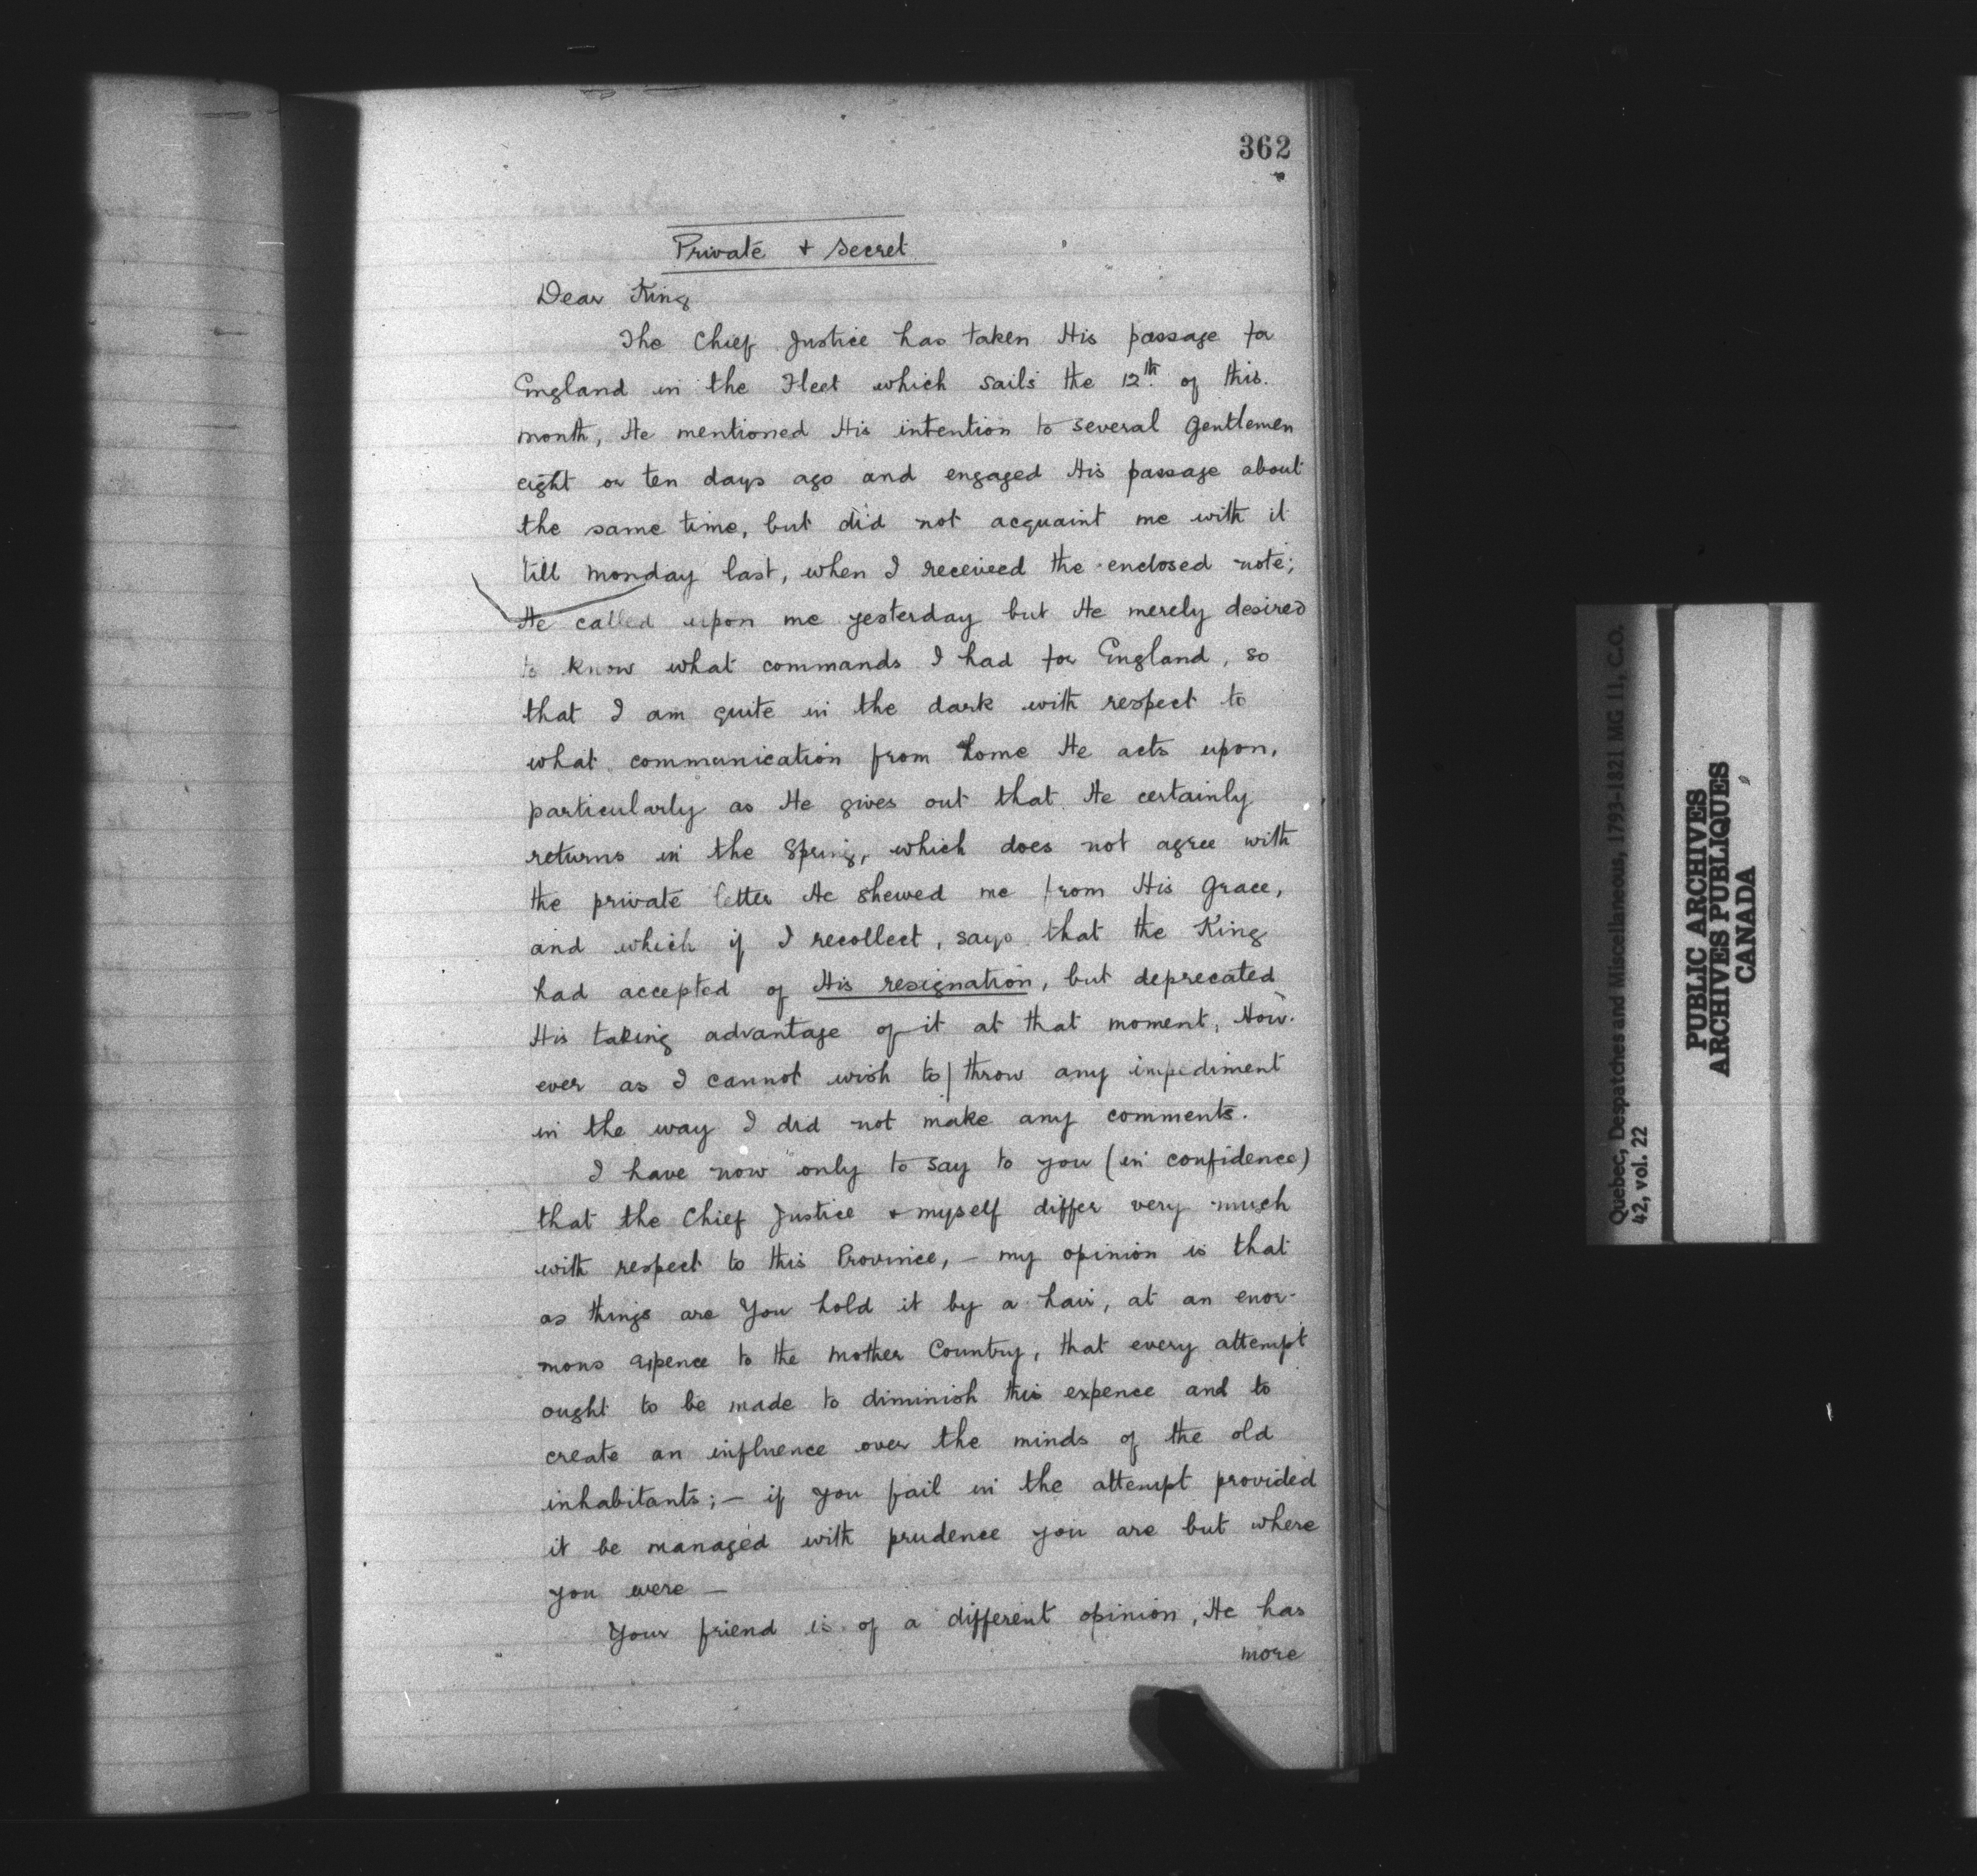 362
Private + Secret
Dear King
The Chief Justice has taken His passage for
England in the Fleet which sails the 12th. of this.
month, He mentioned His intention to several Gentlemen
eight or ten days ago and engaged His passage about
the same time, but did not acquaint me with it
till monday last, when I received the enclosed note;
He called upon me yesterday but He merely desired
to know what commands I had for England, so
that I am quite in the dark with respect to
what communication from home He acts upon,
particularly as He gives out that He certainly
returns in the Spring, which does not agree with
the private letter He shewed me from His Grace,
and which if I recollect, says that the King
had accepted of His resignation, but deprecated
His taking advantage of it at that moment, How-
ever as I cannot wish to throw any impediment
in the way I did not make any comments.
I have now only to say to you (in confidence)
that the Chief Justice + myself differ very much
with respect to this Province, — my opinion is that
as things are You hold it by a hair, at an enor-
mous expence to the Mother Country, that every attempt
ought to be made to diminish this expence and to
create an influence over the minds of the old
inhabitants; — if you fail in the attempt provided
it be managed with prudence you are but where
you were —
Your friend is of a different opinion, He has
more
Quebec, Despatches and Miscellaneous, 1793-1821 MG 11, C.O.
42, vol. 22
PUBLIC ARCHIVES
ARCHIVES PUBLIQUES
CANADA